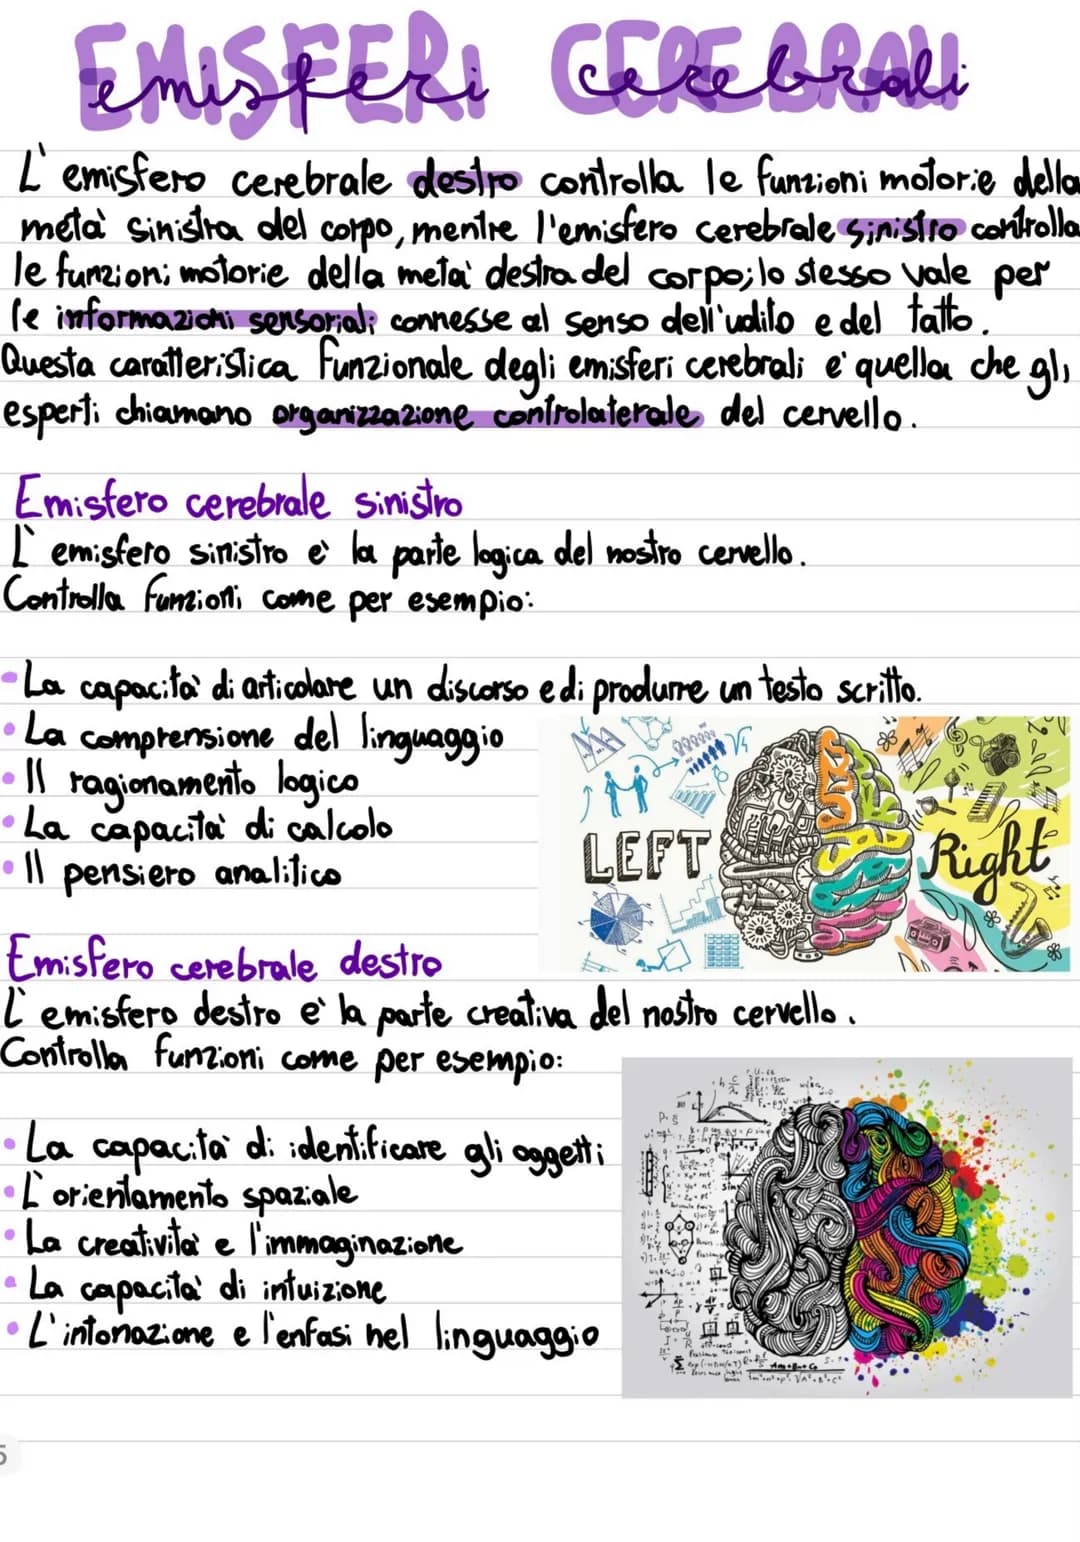 EMISFERI CEREBRALI
emisferi cerebrali
L'emisfero cerebrale destro controlla le funzioni motorie della
metà sinistra del corpo, mentre l'emisfero cerebrale sinistro controlla
le funzioni motorie della metà destra del corpo; lo stesso vale per
le informazioni sensoriali connesse al senso dell'udito e del tatto.
Questa caratteristica funzionale degli emisferi cerebrali è quella che gli
esperti chiamano organizzazione controlaterale del cervello.
Emisfero cerebrale sinistro
L'emisfero sinistro è la parte logica del nostro cervello.
Controlla funzioni come per esempio:
- La capacità di articolare un discorso e di produrre un testo scritto.
• La comprensione del linguaggio
• Il ragionamento logico
• La capacità di calcolo
• Il pensiero analitico
LEFT
Right
Emisfero cerebrale destro
L'emisfero destro è la parte creativa del nostro cervello.
Controlla funzioni come per esempio:
• La capacità di identificare gli oggetti
• L'orientamento spaziale
• La creatività e l'immaginazione
• La capacità di intuizione
• L'intonazione e l'enfasi nel linguaggio
5